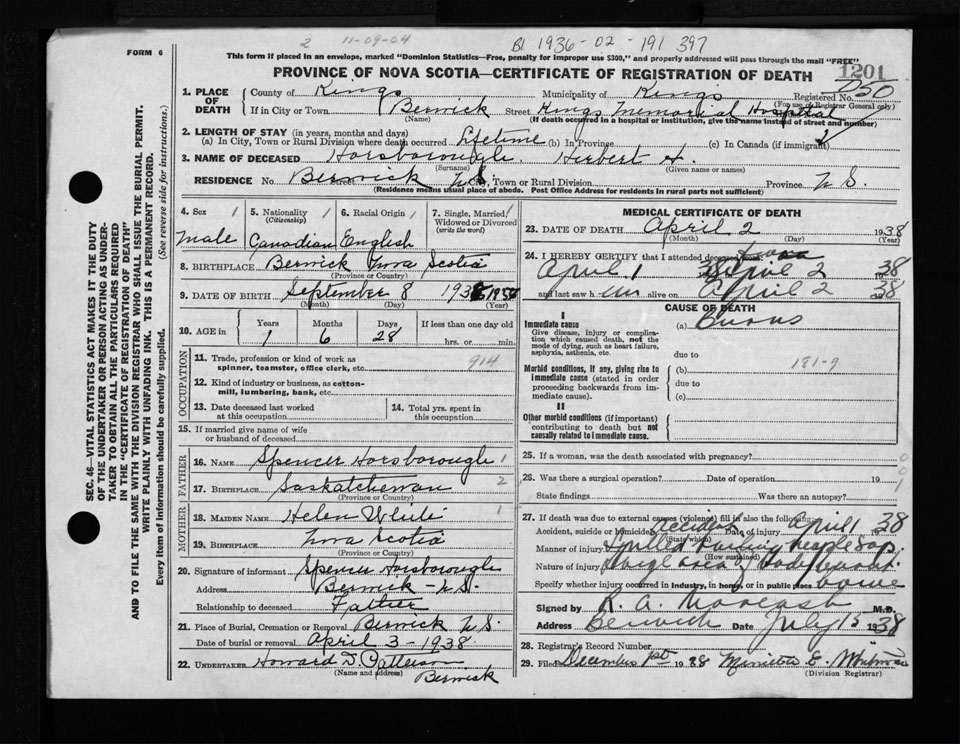 2 11-09-04 B1 1936-02-191 397
FORM 6
This form if placed in an envelope, marked "Dominion Statistics—Free, penalty for improper use $300," and properly addressed will pass through the mail "FREE"
PROVINCE OF NOVA SCOTIA—CERTIFICATE OF REGISTRATION OF DEATH
1201
1. PLACE OF DEATH
County of Kings Municipality of Kings Registered No. 050
(For use of Registrar General only)
If in City or Town Berwick Street Kings Memorial Hospital
(Name) (If death occurred in a hospital or institution, give the name instead of street and number)
2. LENGTH OF STAY (in years, months and days)
(a) In City, Town or Rural Division where death occurred Lifetime (b) In Province (c) In Canada (if immigrant)
3. NAME OF DECEASED Horsborough Herbert H.
(Surname) (Given name or names)
RESIDENCE No. Berwick Street N.S. City, Town or Rural Division Province N.S.
(Residence means usual place of abode. Post Office Address for residents in rural parts not sufficient)
4. Sex 1
male
5. Nationality 1
(Citizenship)
Canadian
6. Racial Origin 1
English
7. Single, Married 1
Widowed or Divorced
(write the word)
8. BIRTHPLACE Berwick Nova Scotia
(Province or Country)
9. DATE OF BIRTH September 8 1936
(Month) (Day) (Year)
10. AGE in
Years Months Days If less than one day old
1 6 28 hrs. or min.
OCCUPATION
11. Trade, profession or kind of work as
spinner, teamster, office clerk, etc. 914
12. Kind of industry or business, as cotton-
mill, lumbering, bank, etc.
13. Date deceased last worked
at this occupation
14. Total yrs. spent in
this occupation
15. If married give name of wife
or husband of deceased
FATHER
16. NAME Spencer Horsborough 1
17. BIRTHPLACE Saskatchewan 2
(Province or Country)
MOTHER
18. MAIDEN NAME Helen White 1
19. BIRTHPLACE Nova Scotia
(Province or Country)
20. Signature of informant Spencer Horsborough
Address Berwick - N.S.
Relationship to deceased Father
21. Place of Burial, Cremation or Removal Berwick N.S.
Date of burial or removal April 3 - 1938
22. UNDERTAKER Howard D. Patterson
(Name and address)
Berwick
MEDICAL CERTIFICATE OF DEATH
23. DATE OF DEATH April 2 1938
(Month) (Day) (Year)
24. I HEREBY CERTIFY that I attended deceased from
April 1 38 April 2 1938
and last saw him alive on April 2 1938
CAUSE OF DEATH
I
Immediate cause
Give disease, injury or complication which caused death, not the mode of dying, such as heart failure, asphyxia, asthenia, etc.
(a) Burns
due to
Morbid conditions, if any, giving rise to immediate cause (stated in order proceeding backwards from immediate cause).
(b) 181-9
due to
(c)
II
Other morbid conditions (if important) contributing to death but not causally related to immediate cause.
25. If a woman, was the death associated with pregnancy? 0
26. Was there a surgical operation? Date of operation 19
State findings Was there an autopsy?
27. If death was due to external causes (violence) fill in also the following:
Accident, suicide or homicide accident Date of injury April 1 1938
(State which)
Manner of injury Spilled maple sap
(How sustained)
Nature of injury large area of body burnt
Specify whether injury occurred in industry, in home, or in public place home
Signed by M.D.
Address Berwick Date July 15 1938
28. Registrar's Record Number
29. Filed December 1st 1938
(Division Registrar)
SEC. 46—VITAL STATISTICS ACT MAKES IT THE DUTY
OF THE UNDERTAKER OR PERSON ACTING AS UNDER-
TAKER TO OBTAIN ALL THE PARTICULARS REQUIRED
IN THE "CERTIFICATE OF REGISTRATION OF DEATH"
AND TO FILE THE SAME WITH THE DIVISION REGISTRAR WHO SHALL ISSUE THE BURIAL PERMIT.
WRITE PLAINLY WITH UNFADING INK. THIS IS A PERMANENT RECORD.
Every item of information should be carefully supplied.
(See reverse side for instructions.)